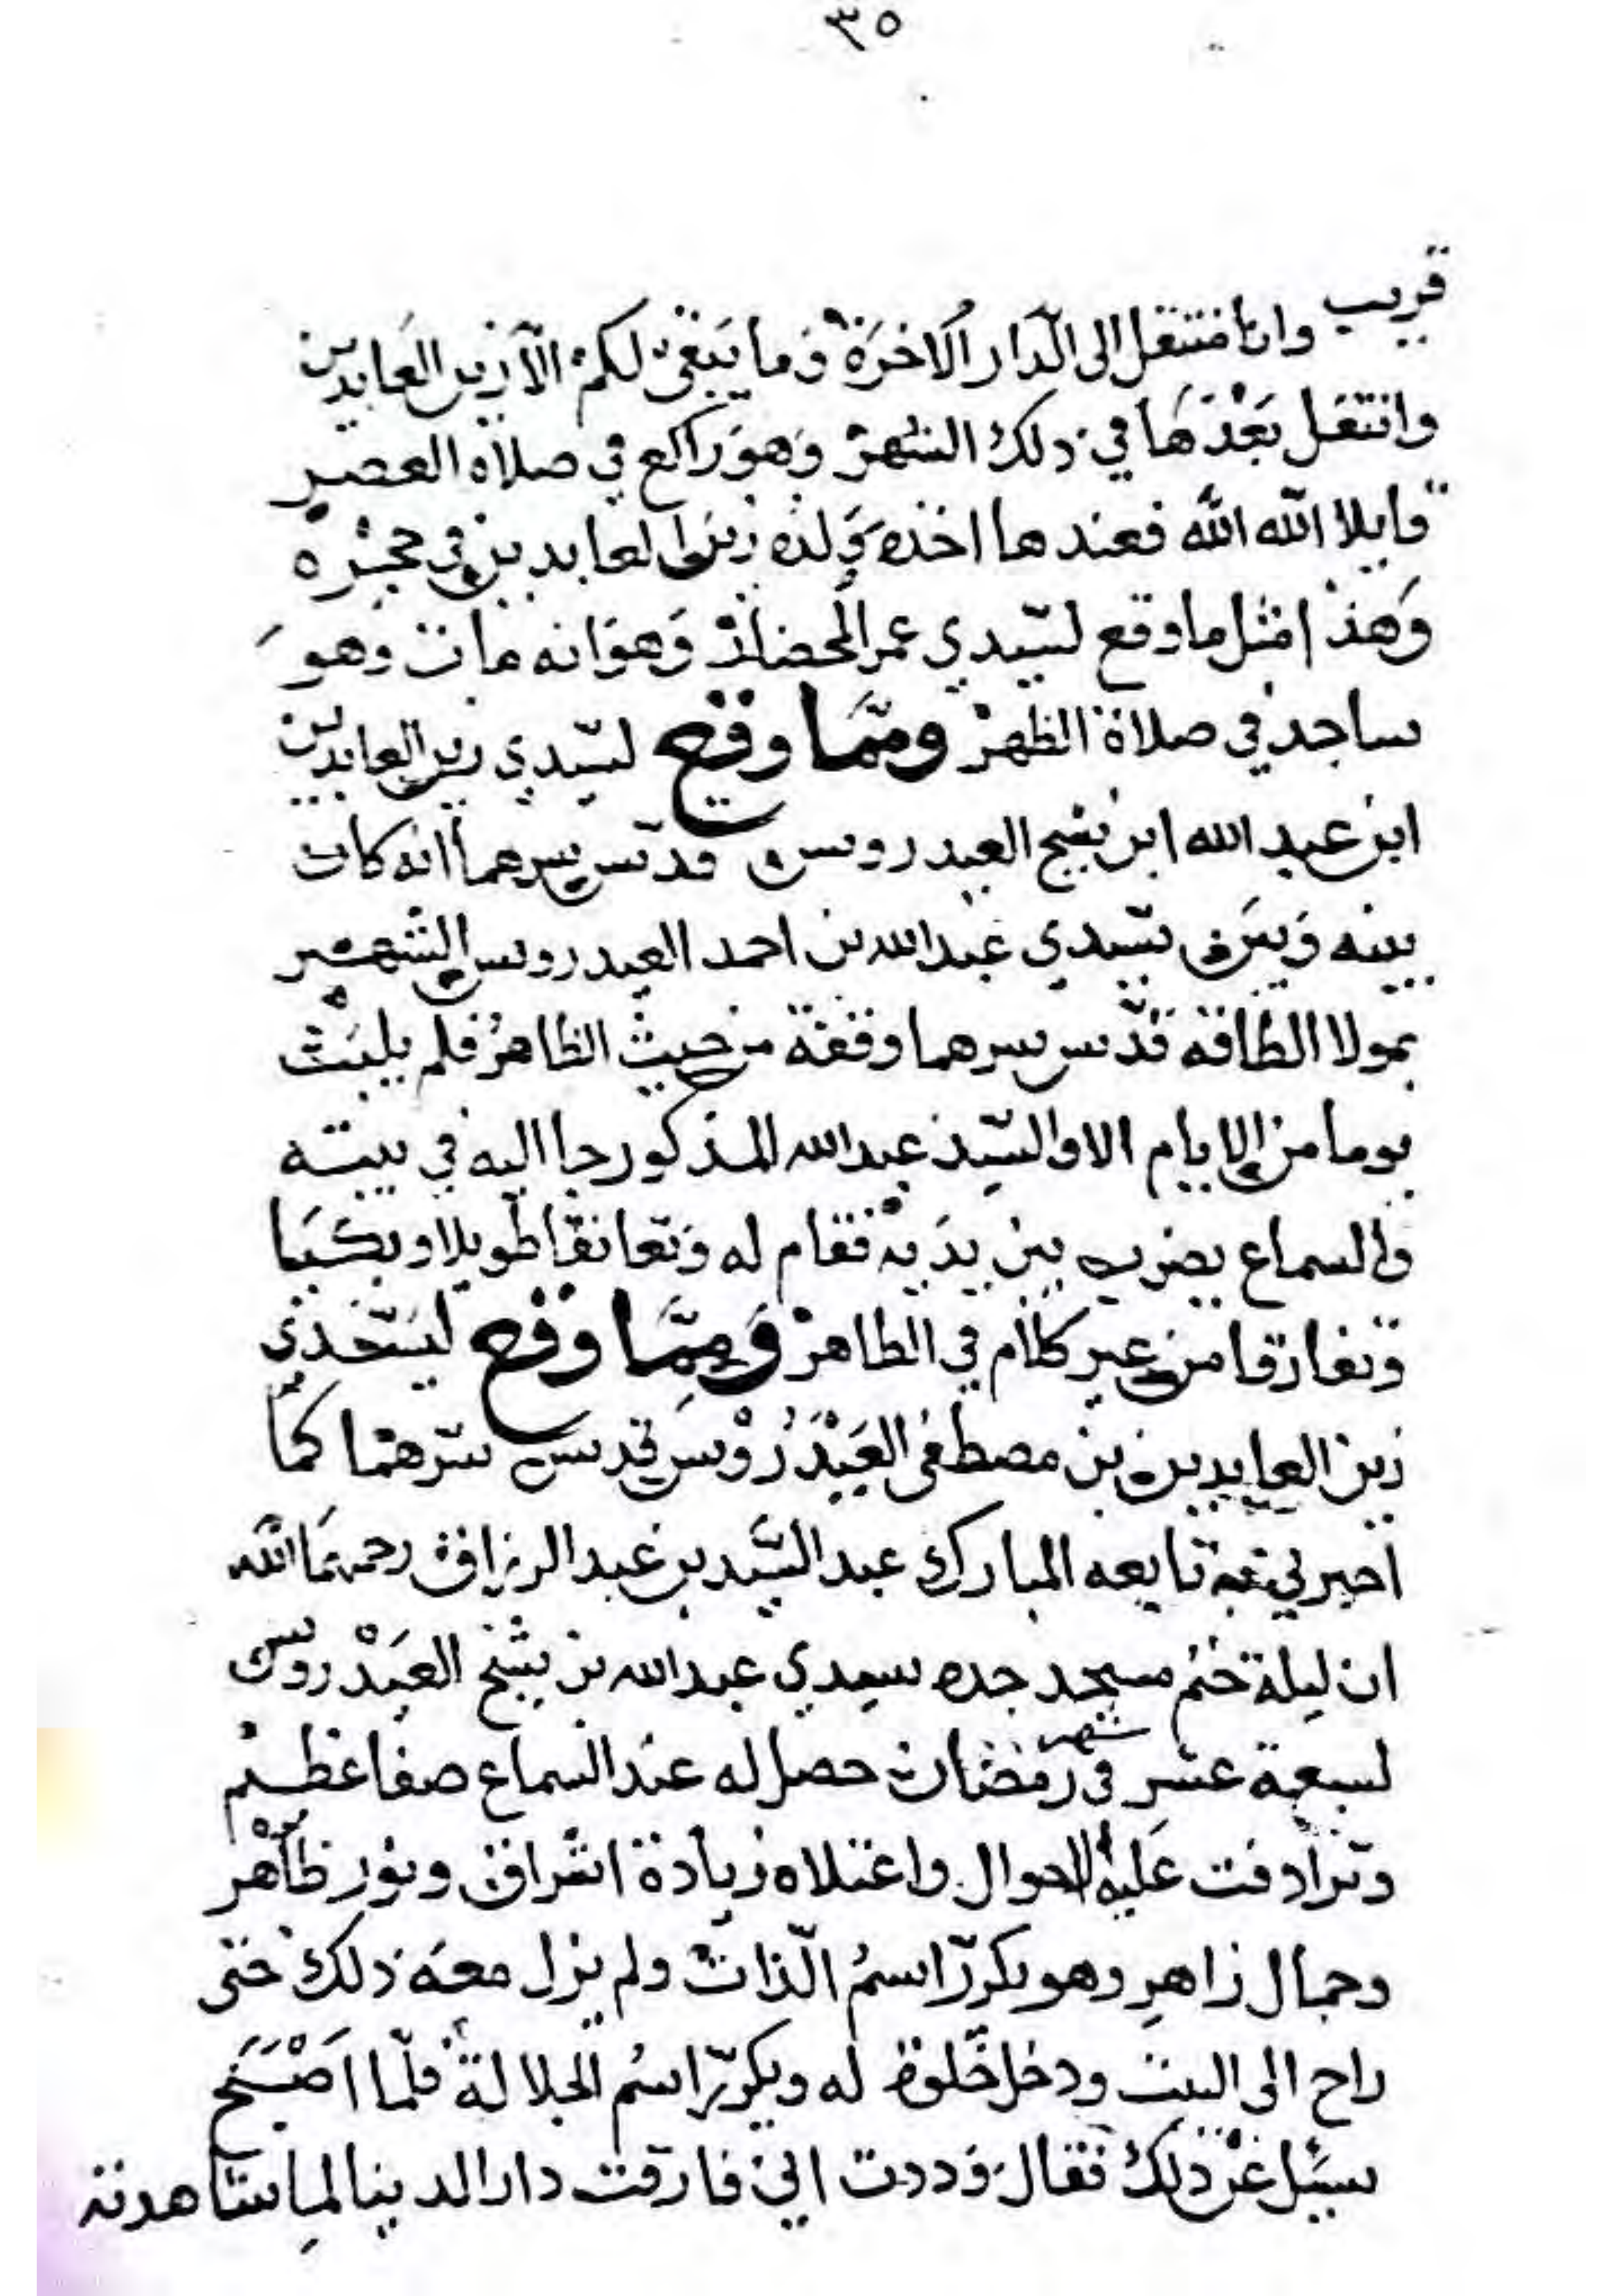 ٣٥
قريب وانا منتقل الى الدار الاخرة وما يبقى لكم الا زين العابدين
وانتقل بعدها في ذلك الشهر وهو راكع في صلاة العصر
قايلا الله الله فعندها اخذه ولده زين العابدين في حجره
وهذا مثل ما وقع لسيدي عمر المحضار وهو انه مات وهو
ساجد في صلاة الظهر ومما وقع لسيدي زين العابدين
ابن عبد الله ابن شيخ العيدروس قدس سرهما انه كان
بينه وبين سيدي عبد الله بن احمد العيدروس الشهير
بمولا الطاقة قدس سرهما وقفة من حيث الظاهر فلم يلبث
يوما من الايام الا والسيد عبد الله المذكور جا اليه في بيته
والسماع يضرب بين يديه فقام له وتعانقا طويلا وبكيا
وتفارقا من غير كلام في الظاهر ومما وقع لسيدي
زين العابدين بن مصطفى العيدروس قدس سرهما كما
اخبرني به تابعه المبارك عبد السيد بن عبد الرزاق رحمهما الله
ان ليلة ختم مسجد جده سيدي عبد الله بن شيخ العيدروس
لسبعة عشر في شهر رمضان حصل له عند السماع صفا عظيم
وترادفت عليه الاحوال واعتلاه زيادة اشراق ونور ظاهر
وجمال زاهر وهو يكرر اسم الذات ولم يزل معه ذلك حتى
راح الى البيت ودخل خلوة له ويكرر اسم الجلالة فلما اصبح
سيئل عن ذلك فقال وددت اني فارقت دار الدنيا لما شاهدته